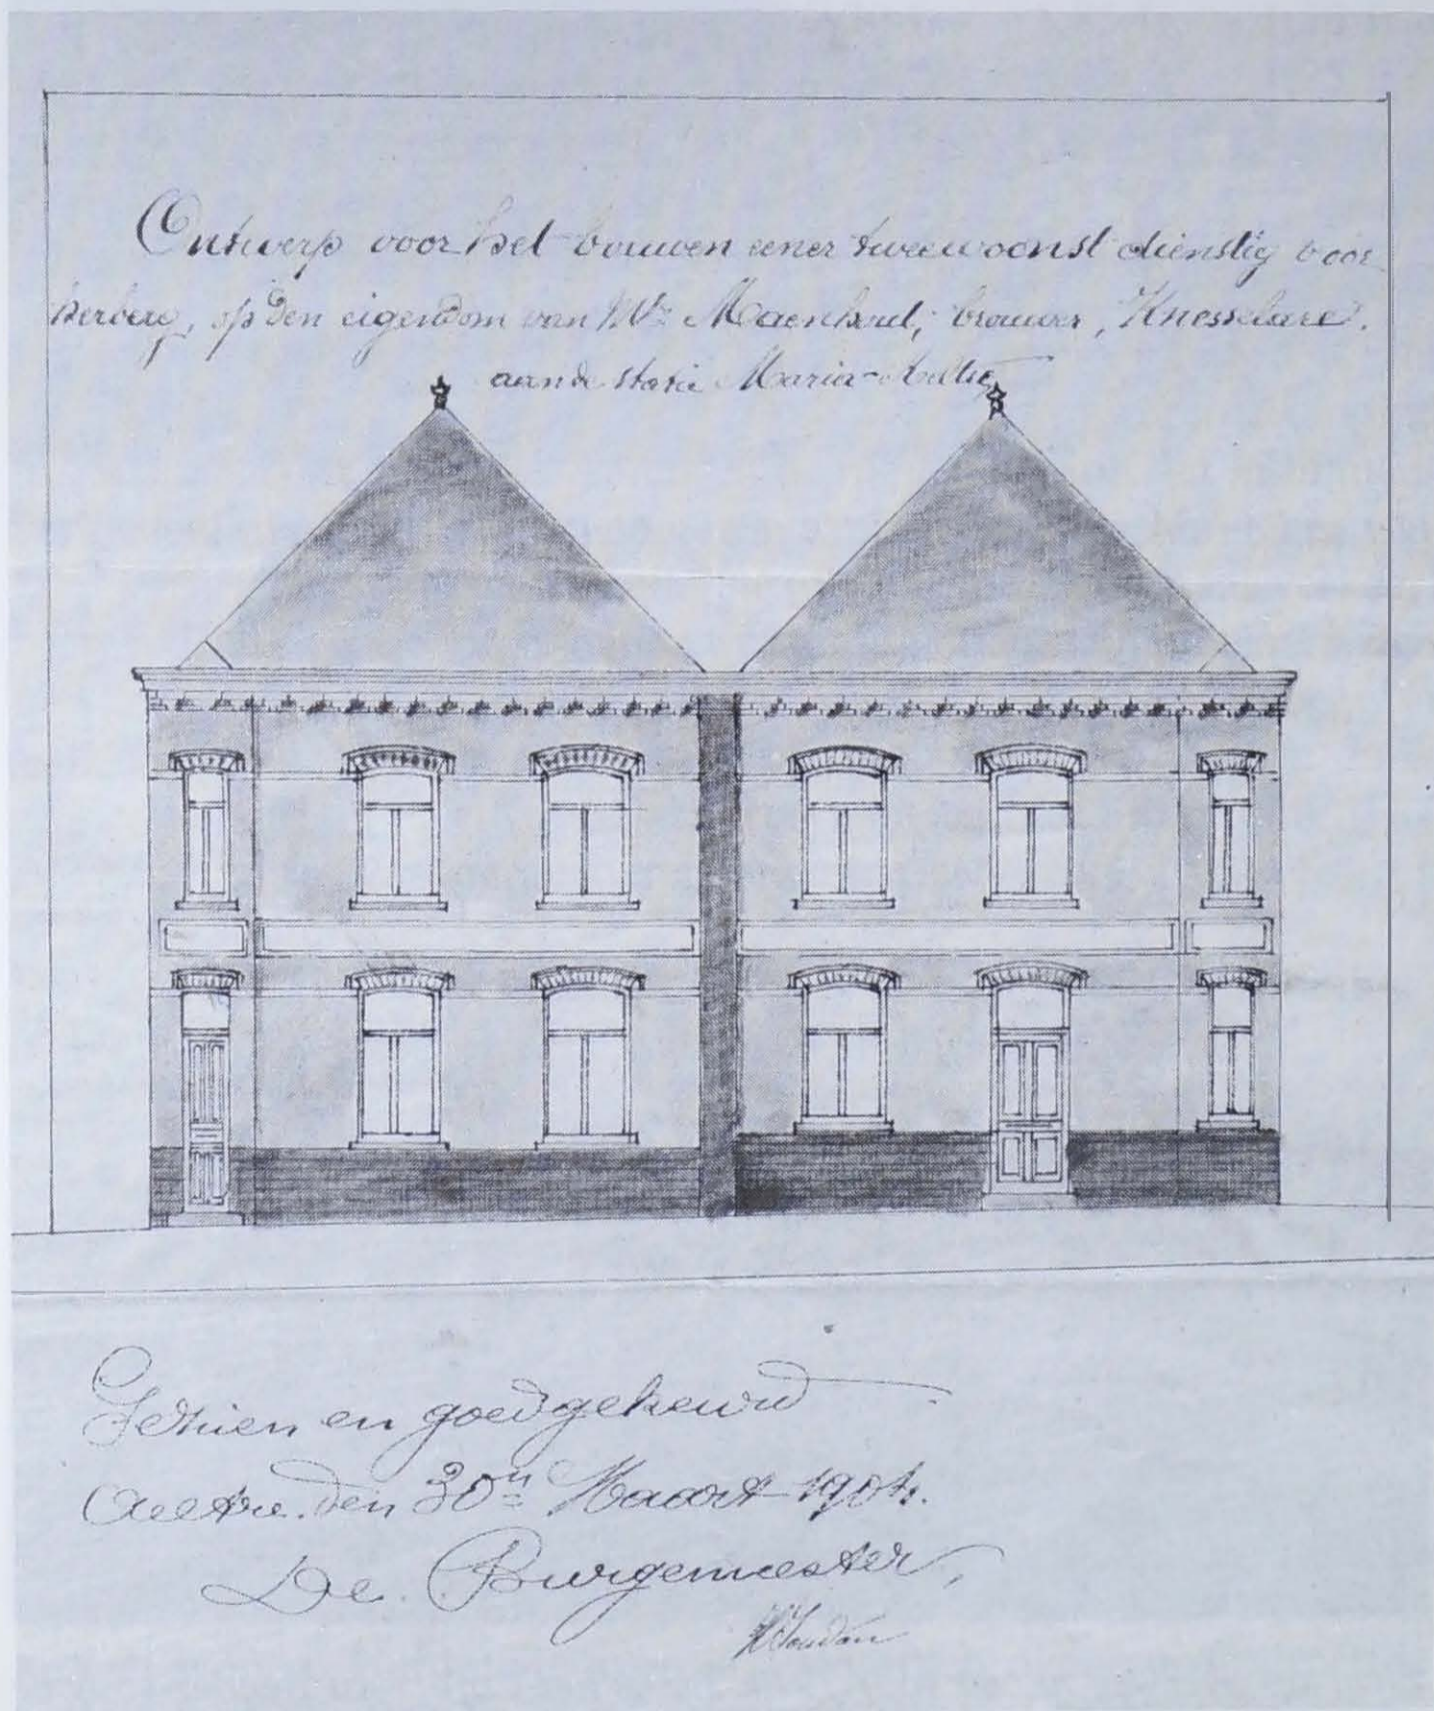 Ontwerp voor het bouwen eener tweewoonst dienstig voor
herberg, op den eigendom van Mr Maenhout, brouwer, Knesselare.
aan de statie Maria-Aeltre
Gezien en goedgekeurd
Aeltre den 30n Maart 1904.
De Burgemeester,